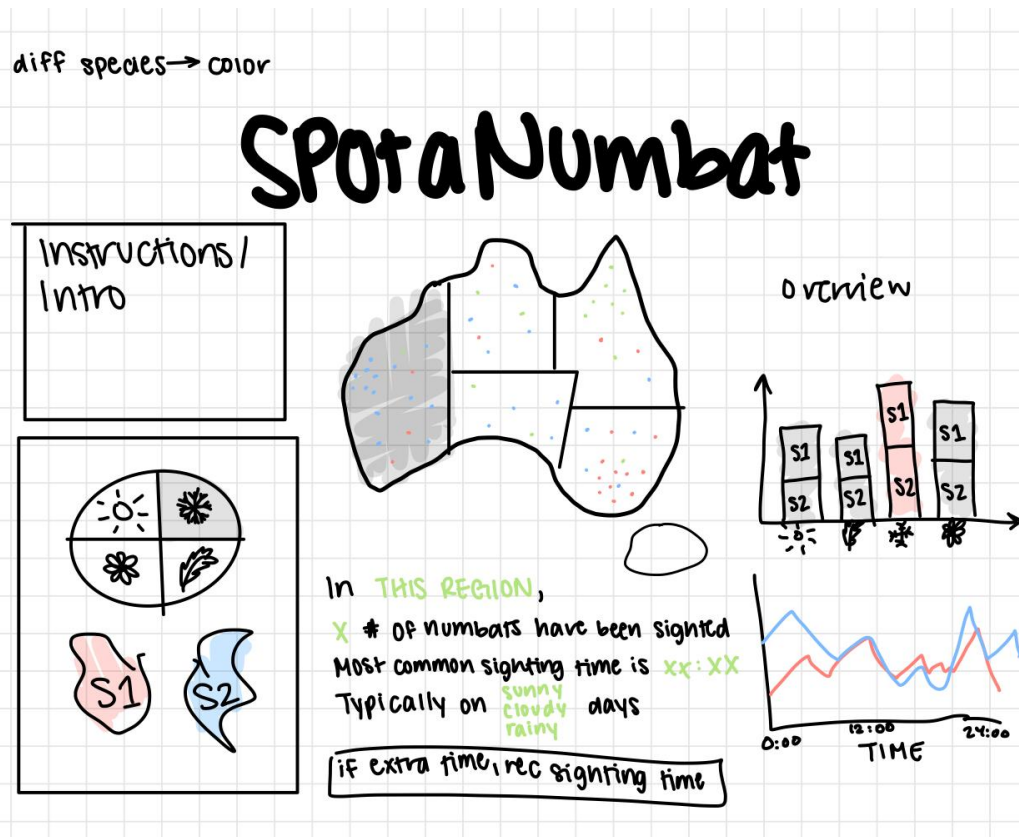 diff species → color
Spot a Numbat
Instructions/
Intro
S1
S2
In THIS REGION,
X # of numbats have been sighted
Most common sighting time is xx:xx
Typically on sunny cloudy rainy days
if extra time, rec sighting time
overview
S1
S2
S1
S2
S1
S2
S1
S2
0:00
12:00
24:00
TIME